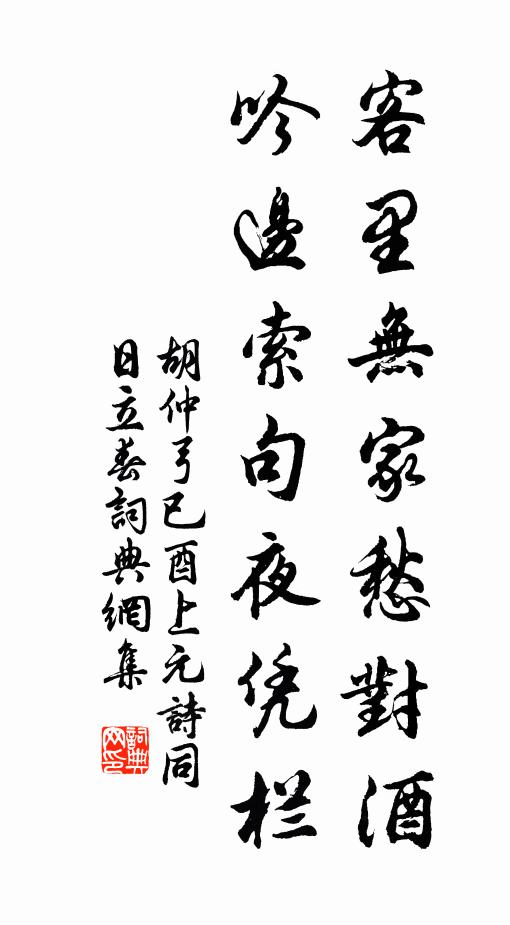 客里無家愁對酒
吟邊索句夜凭栏
胡仲弓已酉上元詩同
日立春詞典網集
詞典网印